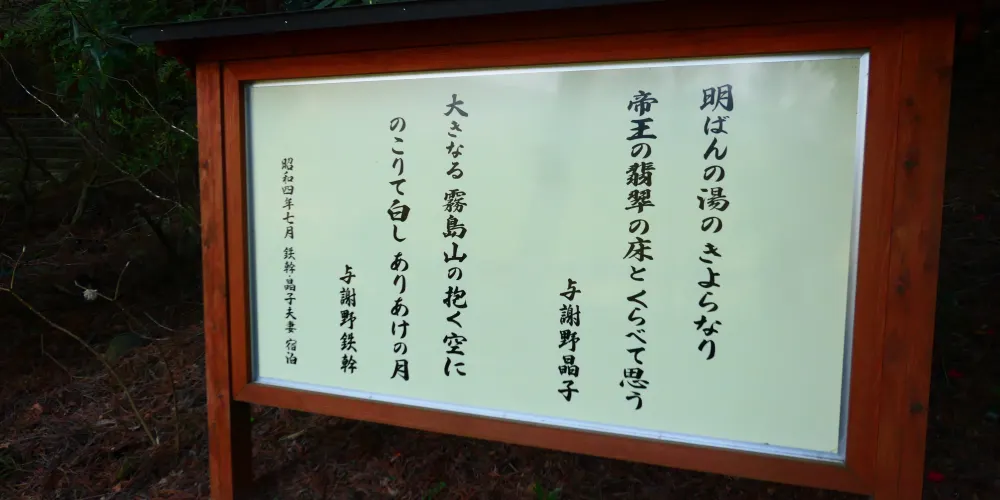 明ばんの湯のきよらなり
帝王の翡翠の床とくらべて思う
与謝野晶子
大きなる霧島山の抱く空に
のこりて白しありあけの月
与謝野鉄幹
昭和四年七月 鉄幹・晶子夫妻宿泊